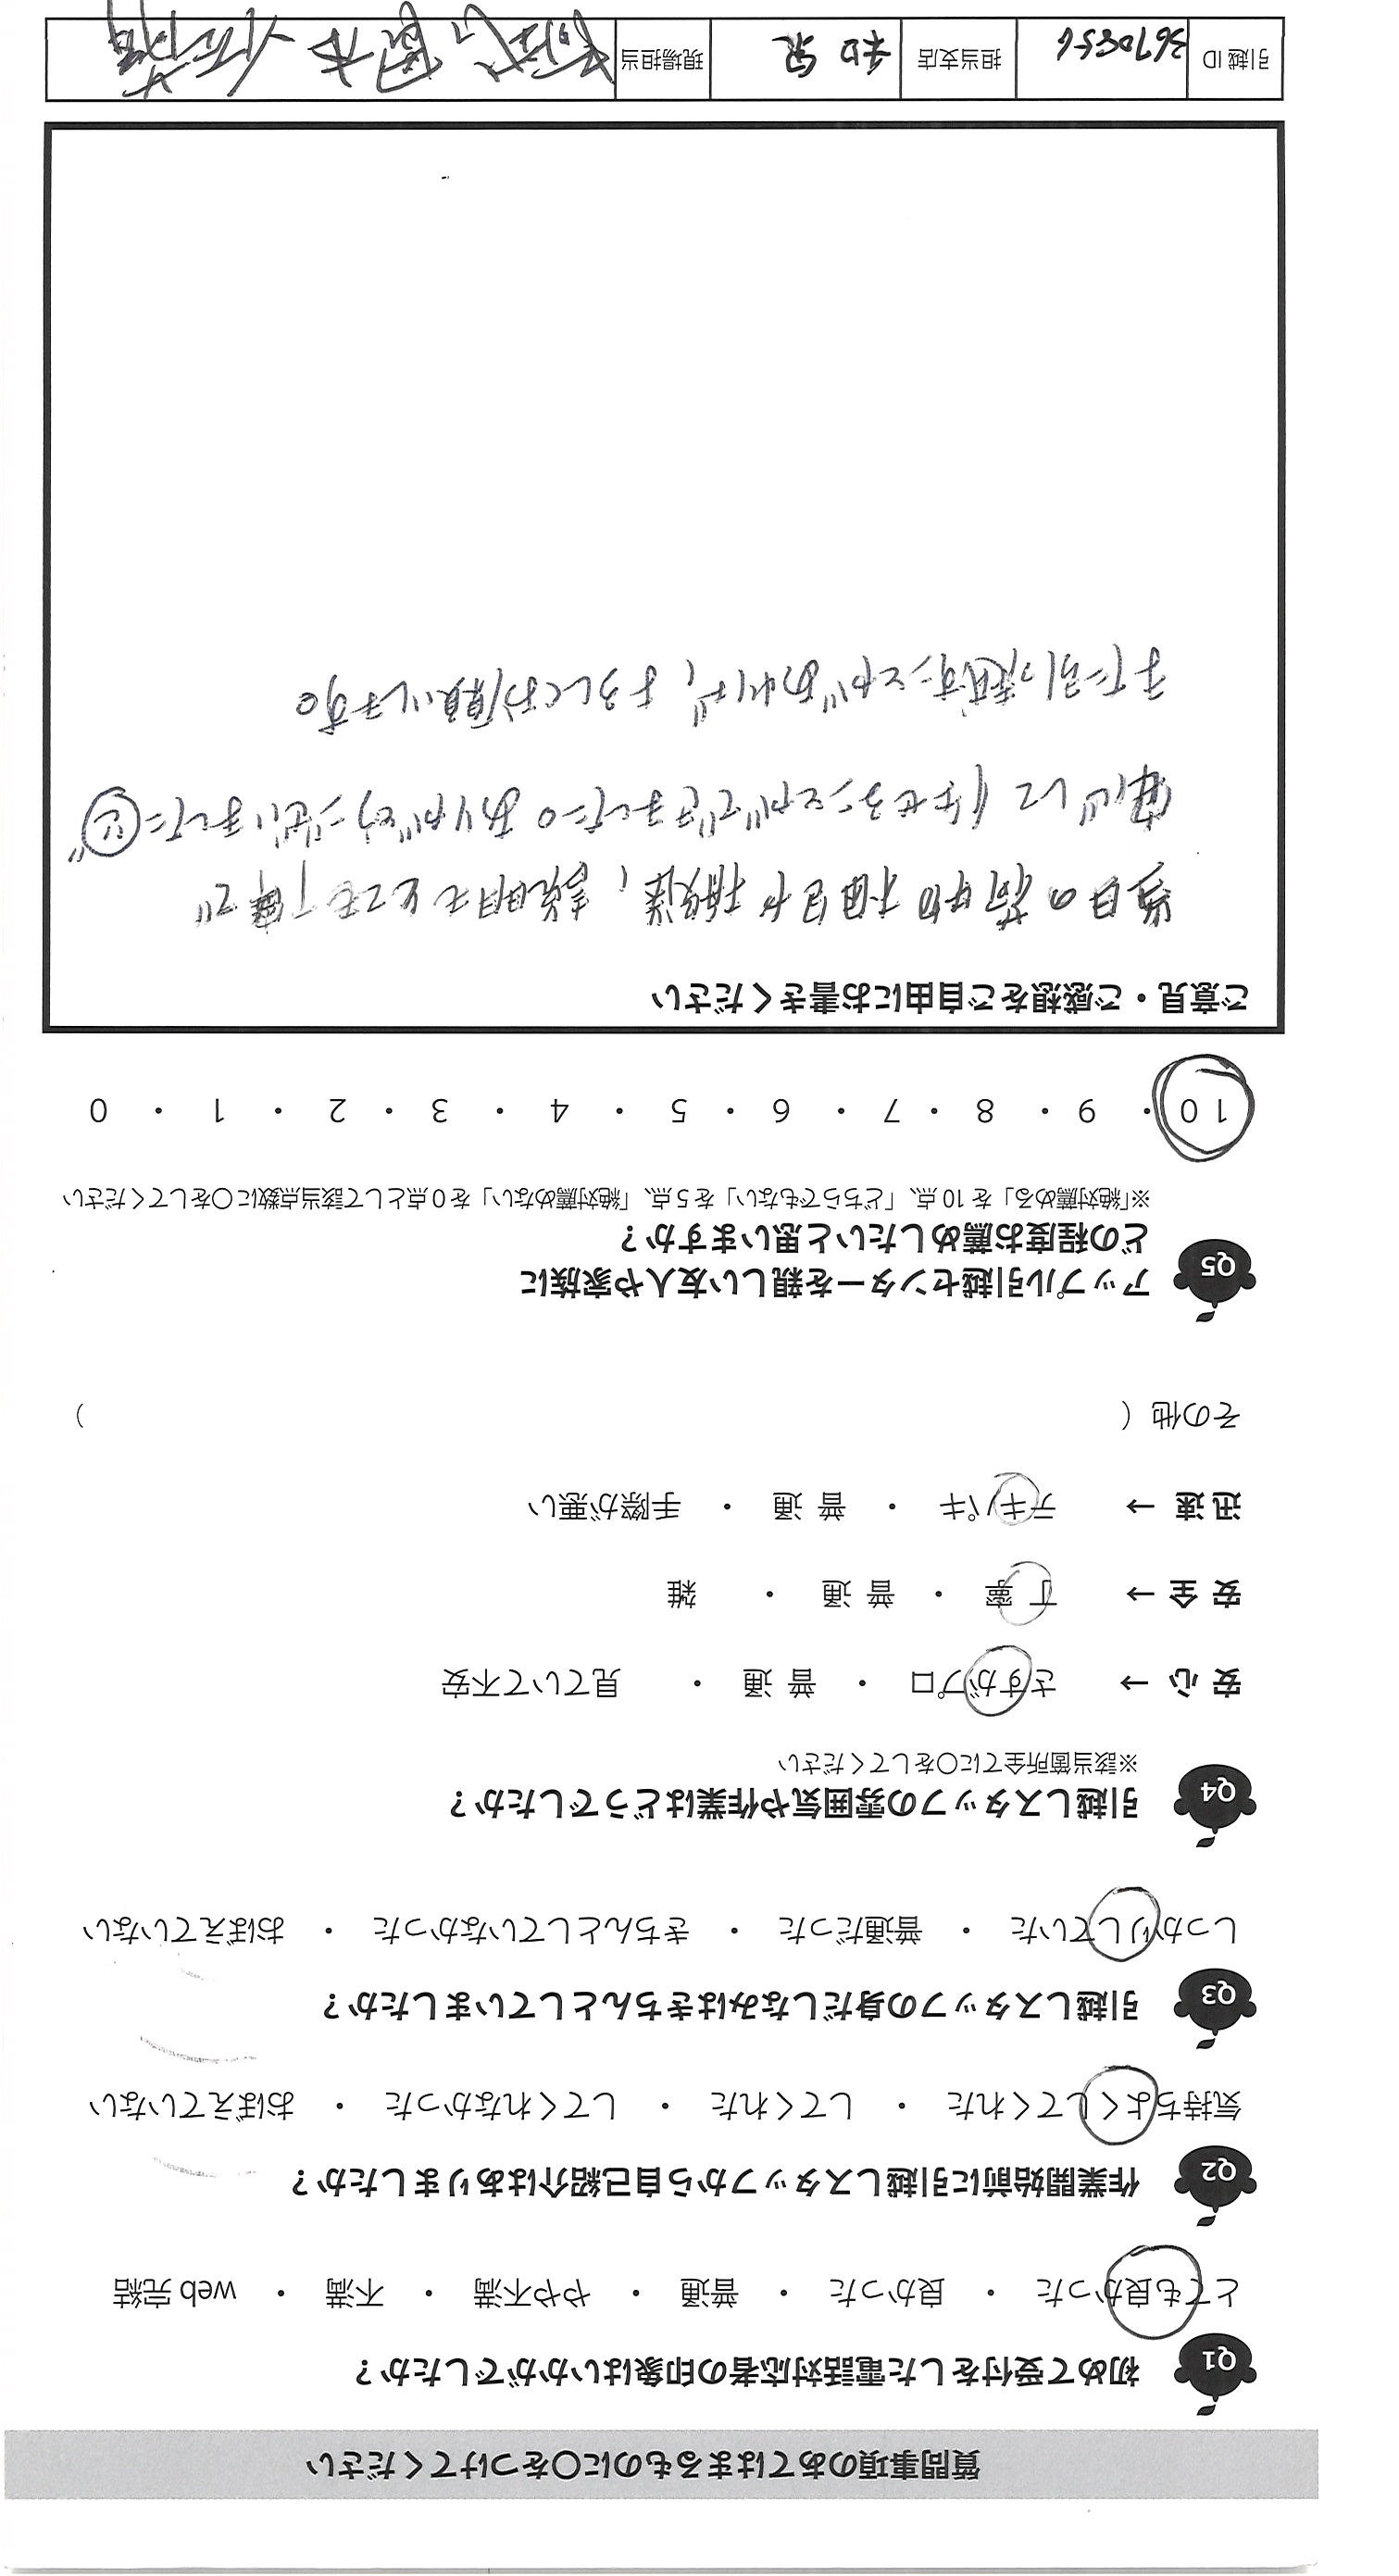 質問事項のあてはまるものに〇をつけてください
Q1 初めて受付をした電話対応者の印象はいかがでしたか？
とても良かった ・ 良かった ・ 普通 ・ やや不満 ・ 不満 ・ web 完結
Q2 作業開始前に引越しスタッフから自己紹介はありましたか？
気持ちよくしてくれた ・ してくれた ・ してくれなかった ・ おぼえていない
Q3 引越しスタッフの身だしなみはきちんとしていましたか？
しっかりしていた ・ 普通だった ・ きちんとしていなかった ・ おぼえていない
Q4 引越しスタッフの雰囲気や作業はどうでしたか？
※該当箇所全てに〇をしてください
安心 → さすがプロ ・ 普通 ・ 見ていて不安
安全 → 丁寧 ・ 普通 ・ 雑
迅速 → テキパキ ・ 普通 ・ 手際が悪い
その他（ ）
Q5 アップル引越センターを親しい友人や家族に
どの程度お薦めしたいと思いますか？
※「絶対薦める」を 10 点、「どちらでもない」を 5 点、「絶対薦めない」を 0 点として該当点数に〇をしてください
10 ・ 9 ・ 8 ・ 7 ・ 6 ・ 5 ・ 4 ・ 3 ・ 2 ・ 1 ・ 0
ご意見・ご感想をご自由にお書きください
当日の荷物梱包や搬送、説明もとても丁寧で
安心して任せることができました。ありがとうございました
また引っ越すことがあれば、よろしくお願いします。
引越 ID 担当支店 和泉 現場担当